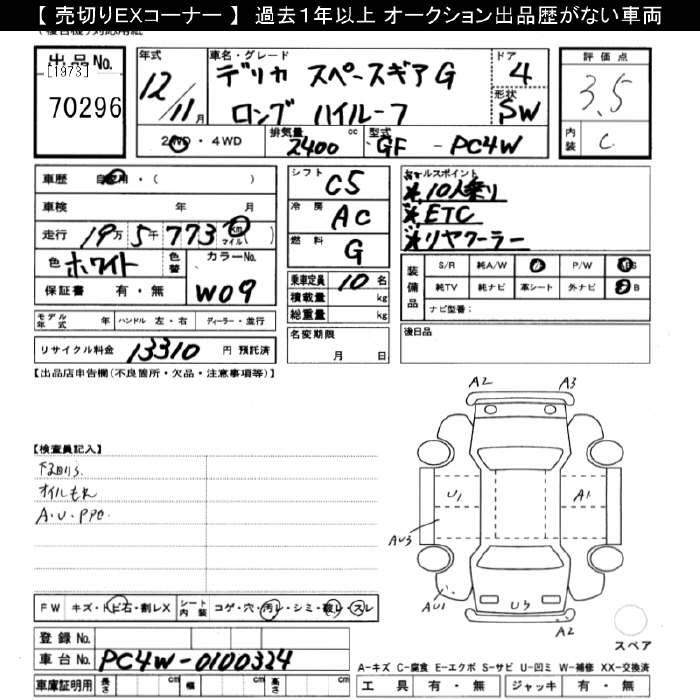 【 売切りEXコーナー 】 過去１年以上 オークション出品歴がない車両
出品No.
[1973]
70296
年式
12/11月
車名・グレード
デリカ スペースギアG
ロング ハイルーフ
ドア
4
形状
SW
評価点
3.5
内装
C
2WD・4WD
排気量
2400cc
型式
GF - PC4W
車歴
自家用・( )
車検 年 月
走行 19万5千773 km マイル( )
色 ホワイト
色替
カラーNo.
W09
保証書 有・無
モデル年式 年 ハンドル 左・右 ディーラー・並行
リサイクル料金 13310 円 預託済
シフト
C5
冷房
AC
燃料
G
乗車定員 10名
積載量 kg
総重量 kg
名変期限
月 日
セールスポイント
※10人乗り
※ETC
※リヤクーラー
装備品
S/R 純A/W P/W
純TV 純ナビ 革シート 外ナビ B
ナビ型番：
後日品
【出品店申告欄(不良箇所・欠品・注意事項等)】
【検査員記入】
下廻りS
オイルもれ
A・U・PPC
A2 A3
U1 A1
AU3
AU1 U3
A2
スペア
FW キズ・トビ石・割レX シート内装 コゲ・穴・汚レ・シミ・破レ・スレ
登録No.
車台No. PC4W-0100324
車庫証明用 長さ cm 幅 cm 高さ cm
A-キズ C-腐食 E-エクボ S-サビ U-凹ミ W-補修 XX-交換済
工具 有・無 ジャッキ 有・無